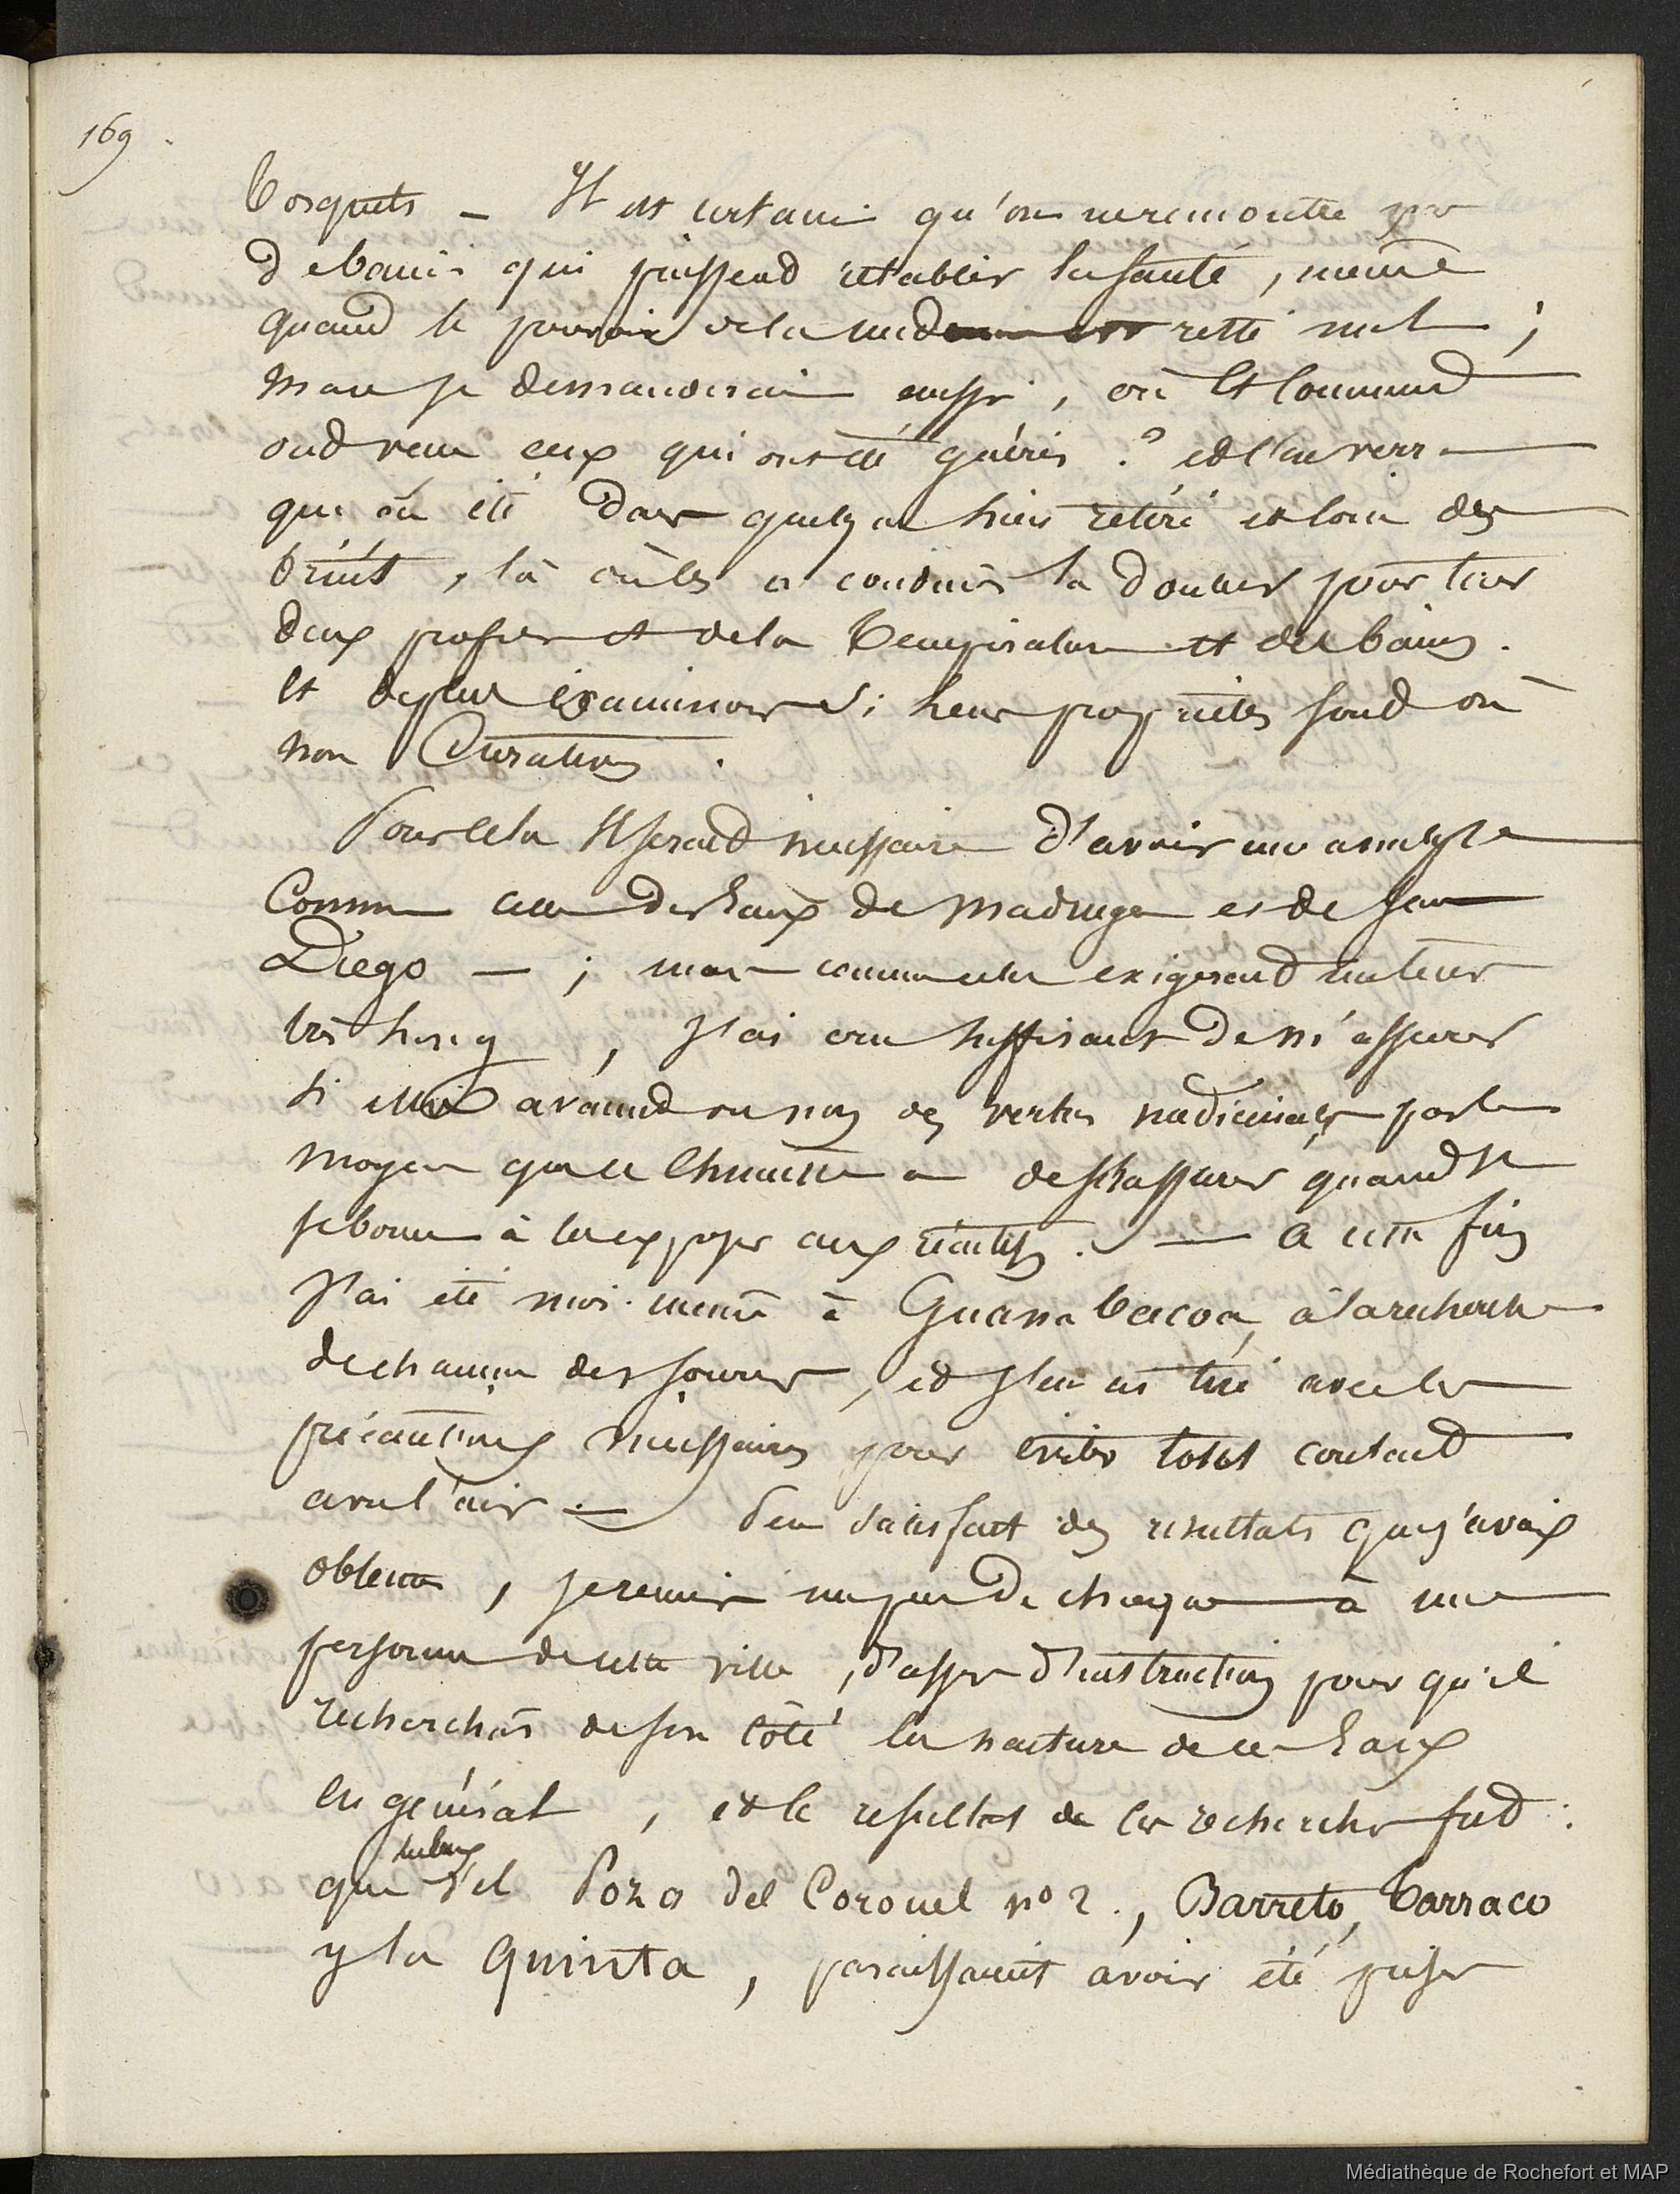 169
bosquets — Il est certain qu'on ne rencontre pas
de bains qui puissend rétablir la santé, même
quand le pouvoir de la medecine est resté nul ;
mais je demanderai aussi, où et commend
ond vecu ceux qui ont été guéris ? et l'on verra
que ça été dans quelque lieu retiré et loin des
bruit, là où les a conduits la douleur pour tirer
deux profits et de la temperature et des bains.
et de plus examinons si leurs propriétés sond ou
non Curatives.
Pour cela Il seraid nécessaire d'avoir une analyse
Comme celle des Eaux de Madruga et de San
Diego — ; mais comme cela exigeraid un temps
très long, J'ai cru suffisant de m'assurer
si elles avaiend ou non des vertus medicinales par le
moyen que le Chimiste a de s'assurer quand il
se borne à les exposer aux réactifs. — a cette fin
J'ai été moi-même à Guanabacoa, à la recherche
de chacune des sources, et J'en ai tiré avec les
précautions nécessaires pour éviter tout contact
avec l'air — Peu satisfait des resultats que j'avais
obtenus, je remis un peu de chaque à une
personne de cette ville, d'assez d'instruction pour qu'il
recherchât de son côté la nature de ces Eaux
en général, et le resultat de ces recherches fud :
que d'el Pozo del Coronel nº 2., Barreto, Tarraco
y la Quinta, paraissaient avoir été puisées
Médiathèque de Rochefort et MAP